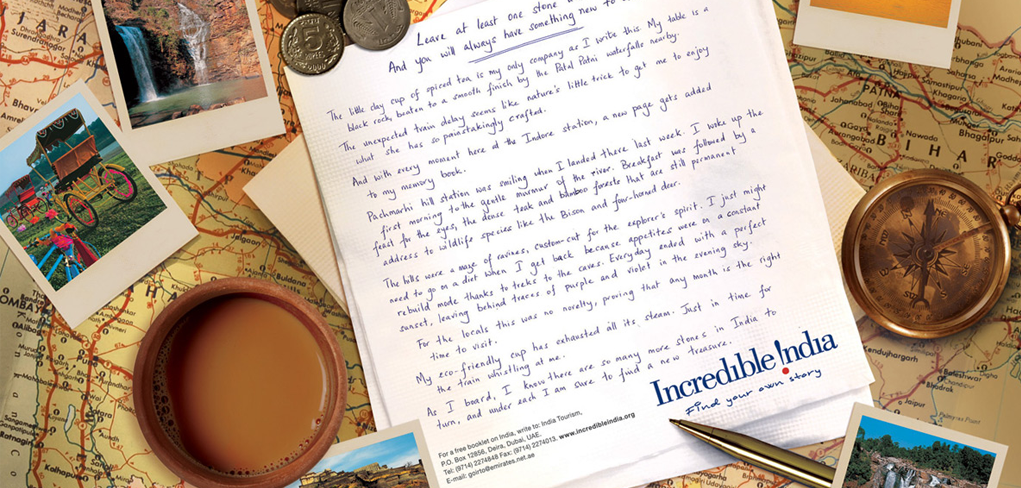 Leave at least one stone
And you will always have something new to
The little clay cup of spiced tea is my only company as I write this. My table is a
block rock, beaten to a smooth finish by the Patal Patni waterfalls nearby.
The unexpected train delay seems like nature's little trick to get me to enjoy
what she has so painstakingly crafted.
And with every moment here at the Indore station, a new page gets added
to my memory book.
Pachmarhi hill station was smiling when I landed there last week. I woke up the
first morning to the gentle murmur of the river. Breakfast was followed by a
feast for the eyes, the dense teak and bamboo forests that are still permanent
address to wildlife species like the Bison and four-horned deer.
The hills were a maze of ravines, custom-cut for the explorer's spirit. I just might
need to go on a diet when I get back because appetites were on a constant
rebuild mode thanks to treks to the caves. Everyday ended with a perfect
sunset, leaving behind traces of purple and violet in the evening sky.
For the locals this was no novelty, proving that any month is the right
time to visit.
My eco-friendly cup has exhausted all its steam. Just in time for
the train whistling at me.
As I board, I know there are so many more stones in India to
turn, and under each I am sure to find a new treasure.
Incredible !ndia
Find your own story
For a free booklet on India, write to: India Tourism,
P.O. Box 12856, Deira, Dubai, UAE.
Tel: (9714) 2274848 Fax: (9714) 2274013. www.incredibleindia.org
E-mail: goirto@emirates.net.ae
5
JARA
Surendranagar
Bhav
Amrel
BOMBAY
Alibag
Ratnagiri
Kolhapur
Buldana
PATNA
Jahanabad
Nawada
Bhagalpur
Gaya
BIHAR
Kendujhargarh
Baleshwar
Bhadrak
Jaipur